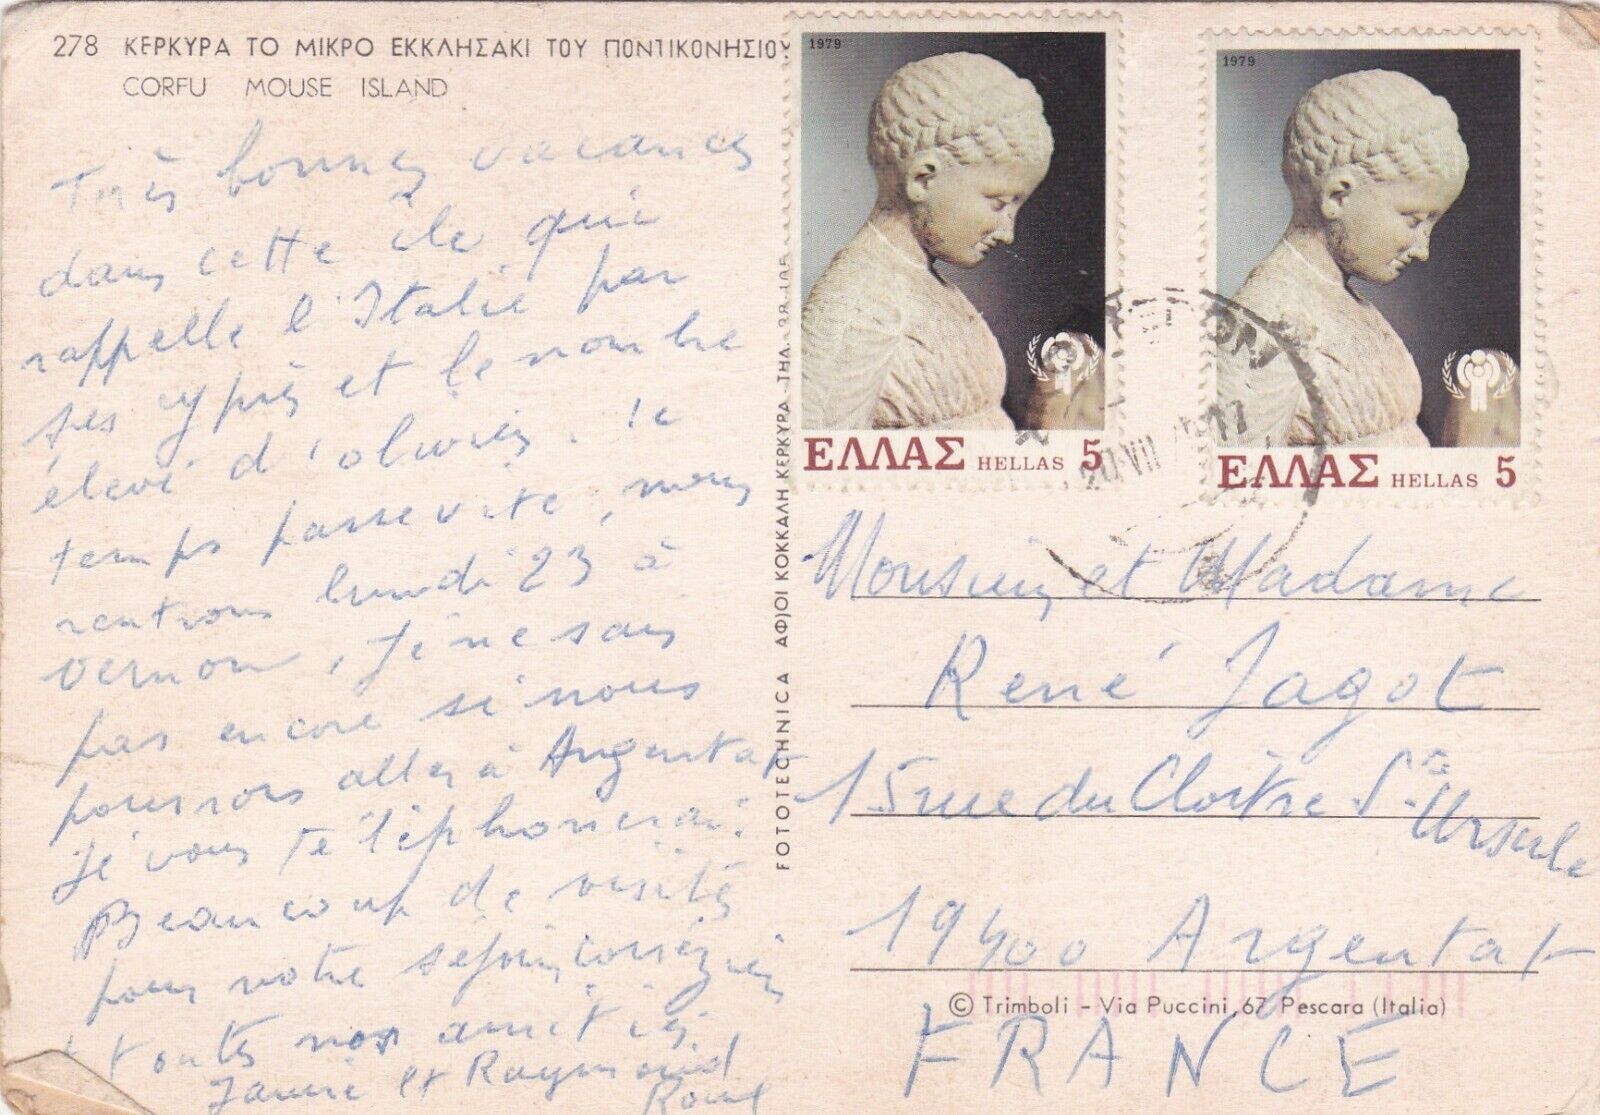 278 ΚΕΡΚΥΡΑ ΤΟ ΜΙΚΡΟ ΕΚΚΛΗΣΑΚΙ ΤΟΥ ΠΟΝΤΙΚΟΝΗΣΙΟΥ
CORFU MOUSE ISLAND
Très bonnes vacances
dans cette île qui
rappelle l'Italie par
ses cyprès et le nombre
élevé d'oliviers. le
temps passe vite, nous
rentrons lundi 23 à
Vernon, Je ne sais
pas encore si nous
pourrons aller à Argentat
Je vous téléphonerai.
Beaucoup de visites
pour notre séjour corrézien
toutes nos amitiés
et Raymond
FOTOTECHNICA ΑΦ)ΟΙ ΚΟΚΚΑΛΗ ΚΕΡΚΥΡΑ - ΤΗΛ.
1979
ΕΛΛΑΣ HELLAS 5
1979
ΕΛΛΑΣ HELLAS 5
Monsieur et Madame
René Jagot
15 rue du Cloître Ste
Ursule
19400 Argentat
© Trimboli - Via Puccini, 67 Pescara (Italia)
FRANCE